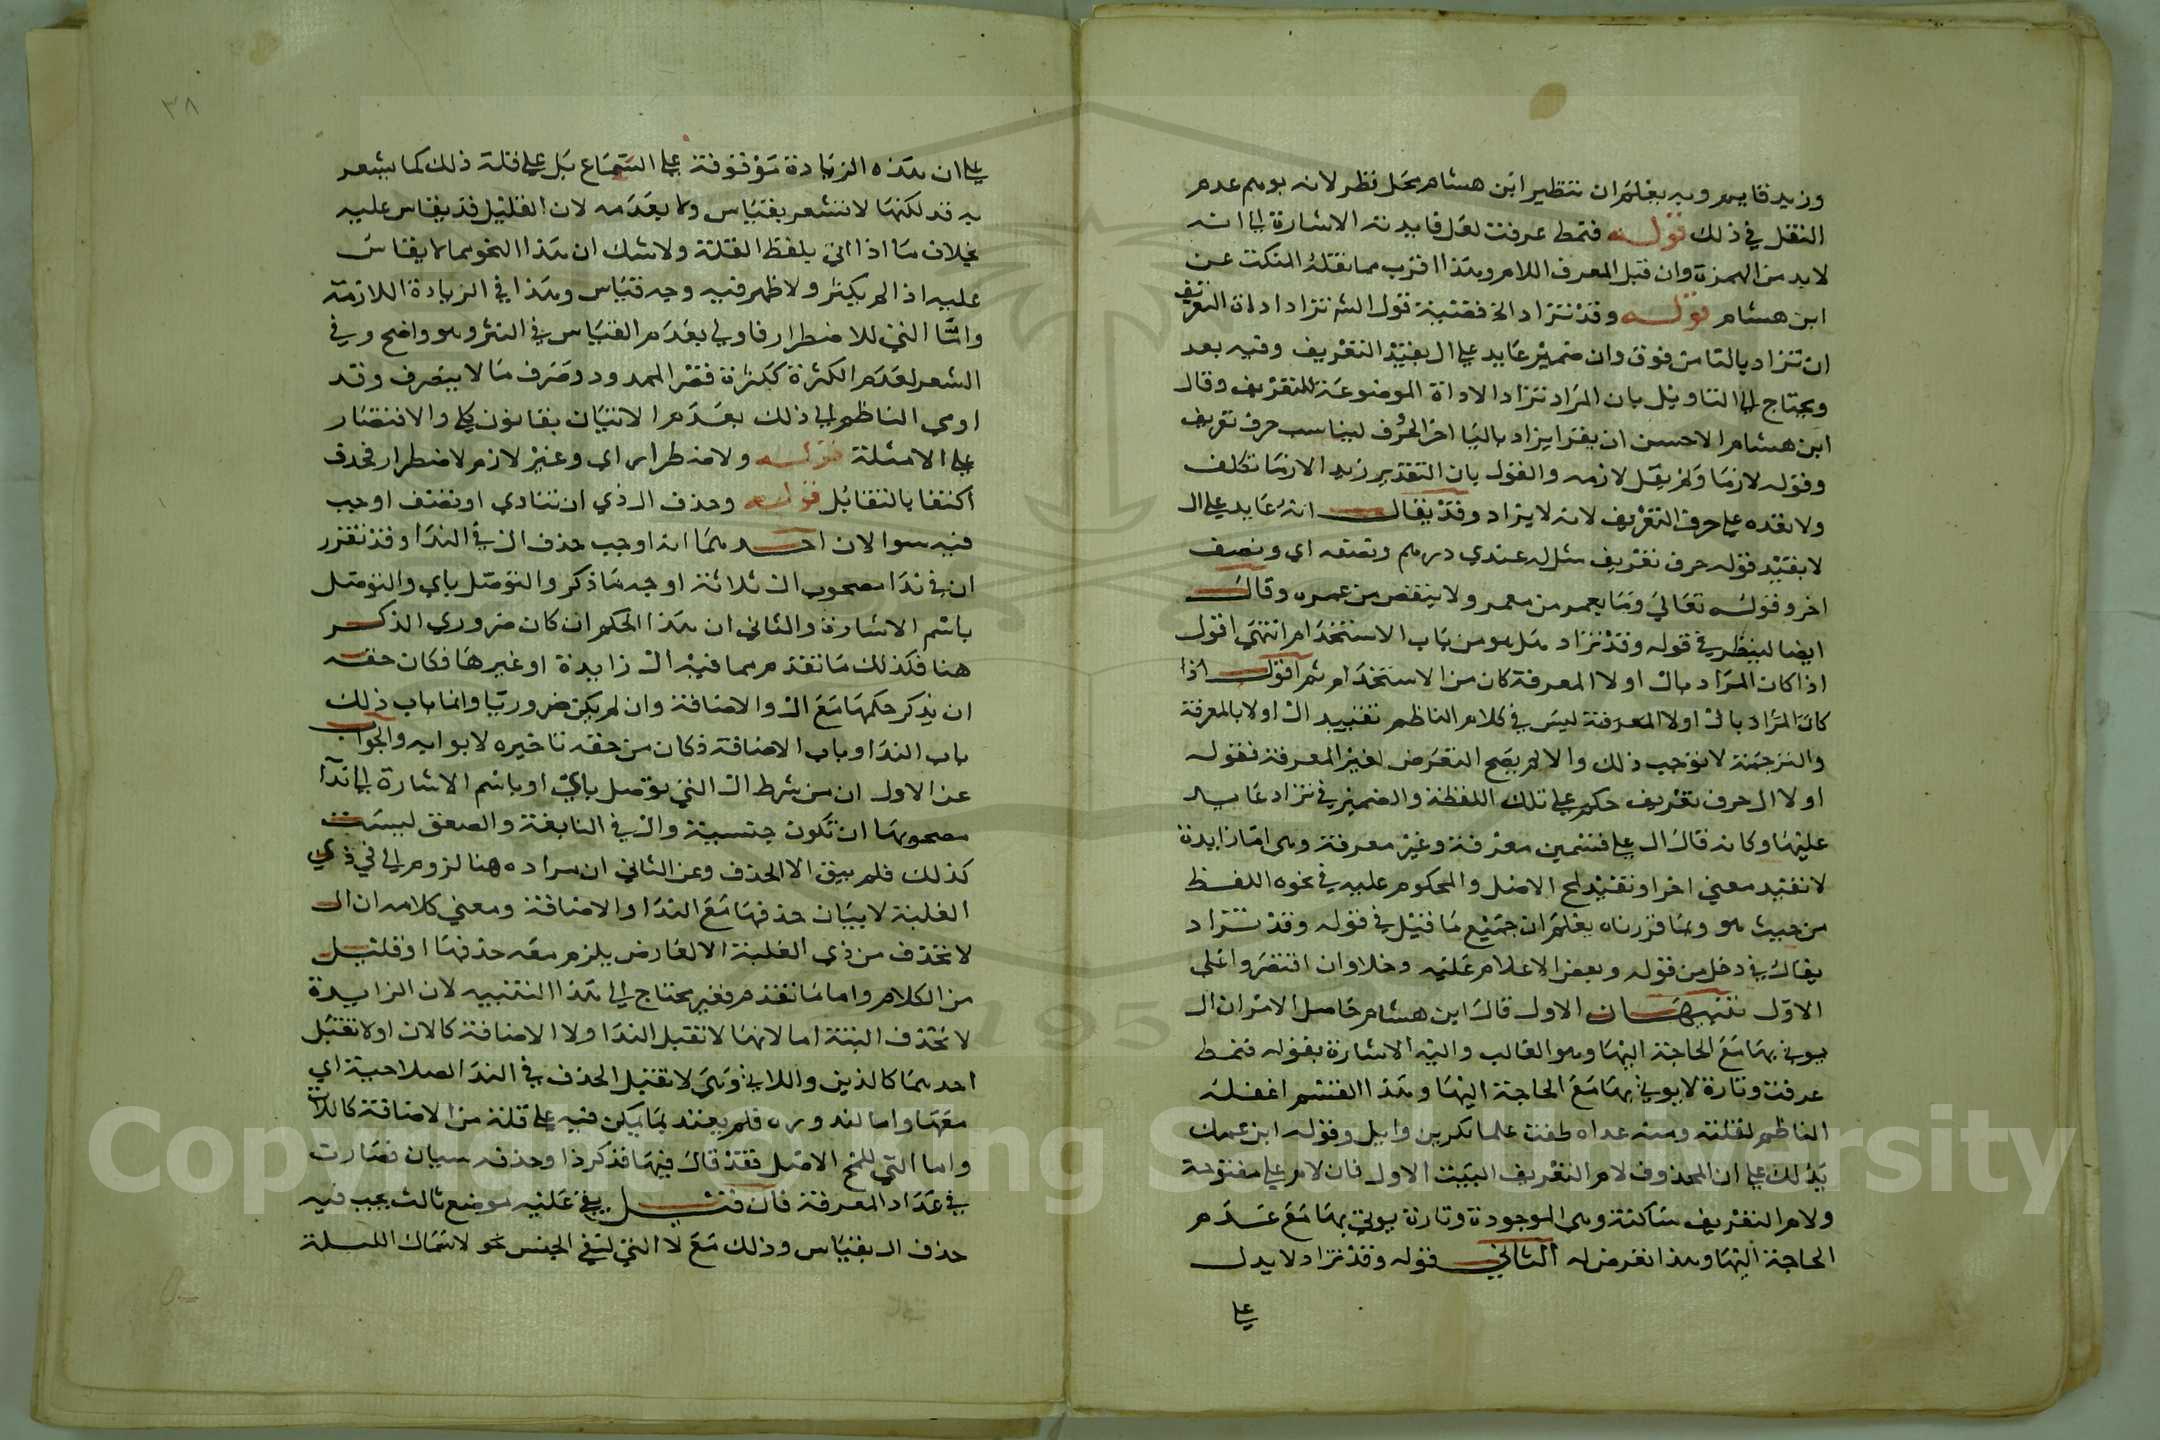 وزيد قايم وبه يعلم ان تنظير ابن هشام محل نظر لانه يوهم عدم
النقل في ذلك قوله فنمط عرفت لعل فايدته الاشارة الى انه
لابد من الهمزة وان قيل المعرف اللام وهذا اقرب مما نقله المنكت عن
ابن هشام قوله وقد تزاد الخ قضية قول الش تزاد اداة التعريف
ان تزاد بالتا من فوق وان ضمير عايد على ال بقيد التعريف وفيه بعد
ويحتاج الى التاويل بان المراد تزاد الاداة الموضوعة للتعريف وقال
ابن هشام الاحسن ان يقرا يزاد باليا اخر الحروف ليناسب حرف تعريف
وقوله لازما ولم يقل لازمه والقول بان التقدير زيد الازما تكلف
ولا نقده على حرف التعريف لانه لا يزاد وقد يقال انه عايد على ال
لا بقيد قوله حرف تعريف مثل له عندي درهم ونصفه اي ونصف
اخر وقوله تعالى وما يعمر من معمر ولا ينقص من عمره وقال
ايضا لينظر في قوله وقد تزاد هل هو من باب الاستخدام انتهى اقول
اذا كان المراد بال اولا المعرفة كان من الاستخدام ثم اقول اذا
كان المراد بال اولا المعرفة ليس في كلام الناظم تقييد ال اولا بالمعرفة
والترجمة لا توجب ذلك والا لم يصح التعرض لغير المعرفة فقوله
اولا ال حرف تعريف حكم على تلك اللفظة والضمير في تزاد عايد
عليها وكانه قال ال على قسمين معرفة وغير معرفة وهي اما زايدة
لا تفيد معنى اخر او تفيد لمح الاصل والمحكوم عليه في نحوه اللفظ
من حيث هو وبما قررناه يعلم ان جميع ما قيل في قوله وقد تزاد
يقال في دخل من قوله وبعض الاعلام عليه دخلا وان اقتصروا على
الاول تنبيهان الاول قال ابن هشام حاصل الامر ان ال
يوتى بها مع الحاجة اليها وهو الغالب واليه الاشارة بقوله فنمط
عرفت وتارة لا يوتى بها مع الحاجة اليها وهذا القسم اغفله
الناظم لقلته ومنه عداه طفت علما بكر بن وايل وقوله ابن عمك
يدلك على ان المحذوف لام التعريف البيت الاول فان لام على مفتوحة
ولام التعريف ساكنة وهي الموجودة وتارة يوتى بها مع عدم
الحاجة اليها وهذا تعرض له الثاني قوله وقد تزاد لا يدل
على
٣٨
على ان هذه الزيادة موقوفة على السماع بل على قلة ذلك كما يشعر
به قد لكنها لا تشعر بقياس ولا بعدمه لان القليل قد يقاس عليه
بخلاف ما اذا اتى بلفظ القلة ولا شك ان هذا النحو مما لا يقاس
عليه اذ لم يكثر ولا ظهر فيه وجه قياس وهذا في الزيادة اللازمة
واما التي للاضطرار فاولى بعدم القياس في النثر وهو واضح وفي
الشعر لعدم الكثرة ككثرة قصر الممدود وصرف ما لا ينصرف وقد
اومي الناظم الى ذلك بعدم الاتيان بقانون كلي والاقتصار
على الامثلة قوله ولاضطرار اي وغير لازم لاضطرار فحذف
اكتفا بالتقابل قوله وحذف ال ذي ان تنادي او تضف اوجب
فيه سوالان احدهما انه اوجب حذف ال في الندا وقد تقرر
ان في ندا مصحوب ال ثلاثة اوجه ما ذكر والتوصل باي والتوصل
باسم الاشارة والثاني ان هذا الحكم ان كان ضروري الذكر
هنا فكذلك ما تقدم مما فيه ال زايدة او غيرها فكان حقه
ان يذكر حكمها مع ال والاضافة وان لم يكن ضروريا وانما باب ذلك
باب الندا وباب الاضافة فكان من حقه تاخيره لابوابه والجواب
عن الاول ان من شرط ال التي توصل باي او باسم الاشارة الى ندآ
مصحوبها ان تكون جنسية وال في النابغة والصعق ليست
كذلك فلم يبق الا الحذف وعن الثاني ان مراده هنا لزوم ال في ذي
الغلبة لا بيان حذفها مع الندا والاضافة ومعنى كلامه ان ال
لا تحذف من ذي الغلبة الا لعارض يلزم معه حذفها او قليل
من الكلام واما ما تقدم فغير محتاج الى هذا التنبيه لان الزايدة
لا تحذف البتة اما لانها لا تقبل الندا ولا الاضافة كالان او لا تقبل
احدهما كالذين واللاتي وهي لا تقبل الحذف في الندا لصلاحية اي
معها واما لندوره فلم يعتد بما يمكن فيه على قلة من الاضافة كاللات
واما التي للمح الاصل فقد قال فيها فذكر ذا وحذفه سيان فصارت
في عداد المعرفة فان قيل بقي عليه موضع ثالث يجب فيه
حذف ال بقياس وذلك مع لا التي لنفي الجنس نحو لا شمال الليلة